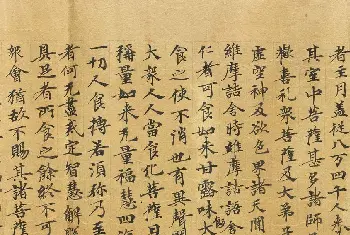 者主月蓋從八万四千人来
其室中菩薩甚多諸師
歡喜礼衆菩薩及大弟子
虚空神及欲色界諸天聞
維摩詰舍時維摩詰語舍
仁者可食如来甘露味飯大
食之使不消也有異聲聞
大衆人人當食化菩薩曰
稱量如来无量福慧四海
一切人食摶若須弥乃至
者何无盡戒定智慧解脱
具足者所食之餘終不可
衆會猶故不賜其諸菩薩